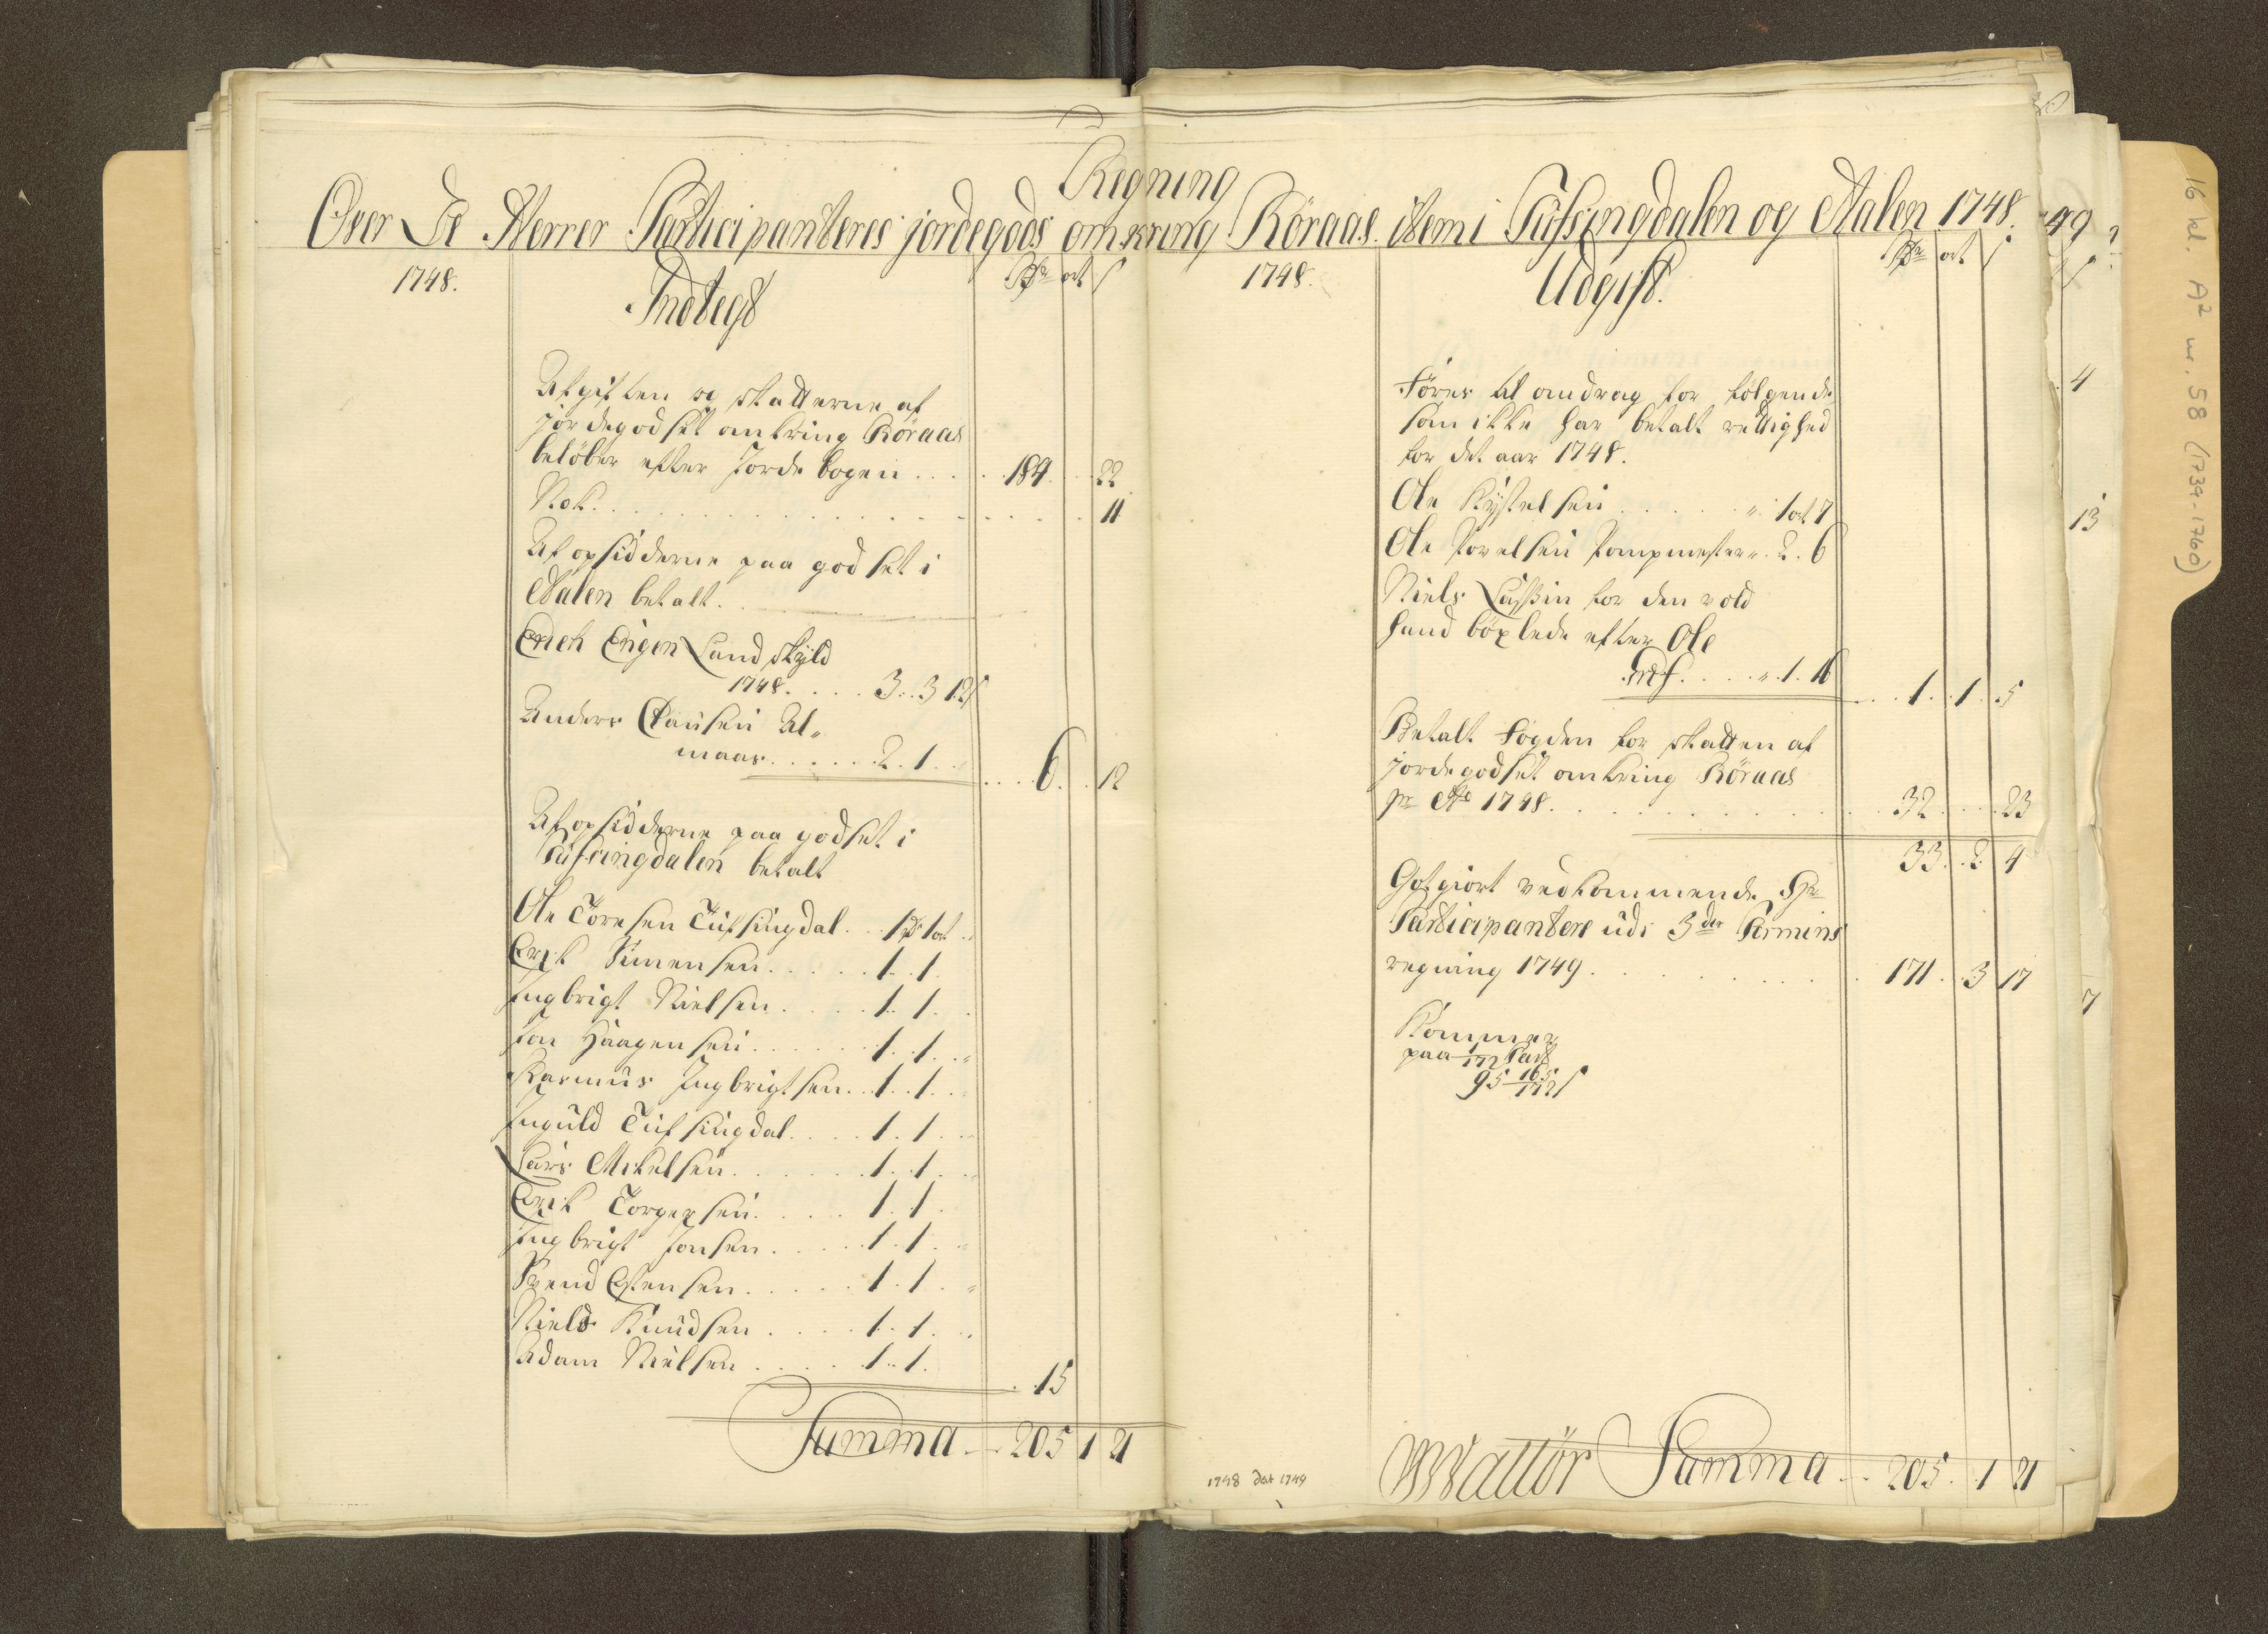 Regning
Over De Herrer Participanteres jordegods omkring Röraas item i Tüfsingdalen og Aalen 1748.
1748.
Indtegt
Rdr ort s
Afgiften og skatterne af
jordegodset omkring Röraas
belöber efter Jorde bogen . . . . 184 . . 22
Nok . . . . 11
Af opsidderne paa godset i
Aalen betalt.
Erich Engen Landskyld
1748. . . . 3. 3 12 s
Anders Clausen Al-
maas . . . . 2. 1. . . . 6. . 12
Af opsidderne paa godset i
Tüfsingdalen betalt
Ole Toresen Tüfsingdal . . 1 rdr 1 ort
Erik Simensen . . . . 1. 1.
Ingbrigt Nielsen . . . . 1. 1.
Jon Haagensen . . . . 1. 1.
Rasmus Ingbrigtsen . . 1. 1.
Inguld Tüfsingdal . . . . 1. 1.
Lars Mikelsen . . . . 1. 1.
Erik Torgersen . . . . 1. 1.
Ingbrigt Jonsen . . . . 1. 1.
Svend Estensen . . . . 1. 1.
Niels Knudsen . . . . 1. 1.
Adam Nielsen . . . . 1. 1.
15
Summa - - 205 1 21
1748.
Udgift.
Rdr ort s
Föres til andrag for følgende
som ikke har betalt rettighed
for det aar 1748.
Ole Kystelsen . . . . " 1 ort 7
Ole Povelsen Pompmester " 2. 6
Niels Lussin for den vold
hand böxlede efter Ole
. . . . " 1. 16 . . 1. 1. 5
Betalt Fogden for skatten af
jordegodset omkring Röraas
pr Ao 1748. . . . 32 . . . 23
33. 2 4
Gotgiort vedkommende Hr
Participantere udi 3die Termins
regning 1749 . . . . 171. 3 17
Kommer
paa 1/172 Part
95 165/172 s
WWattör Summa - - 205. 1 21
1748 dat 1749
49
4
13
7
16 kl. A2 nr. 58 (1734-1760)